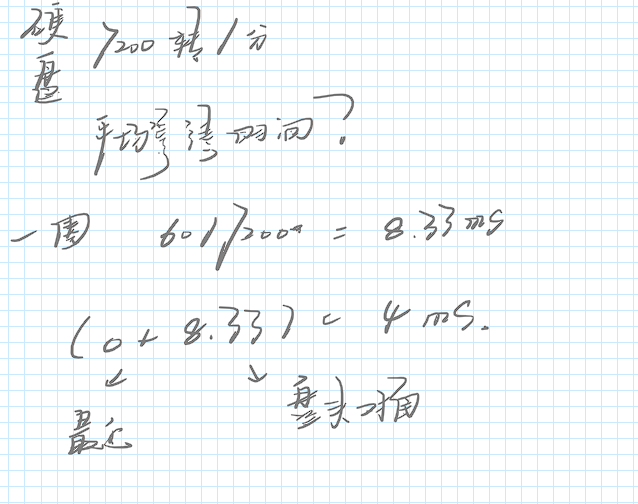 硬盘 7200转/分
平均等待时间?
一圈 60/7200 = 8.33ms
(0 + 8.33) = 4ms.
最近 磁头